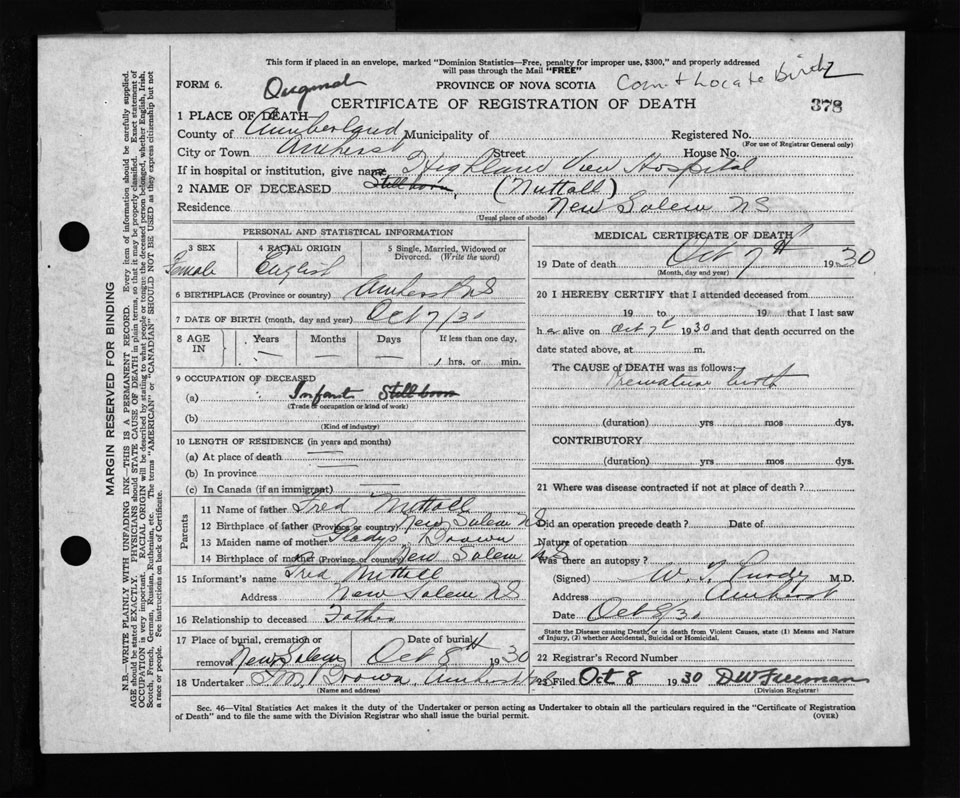 This form if placed in an envelope, marked "Dominion Statistics—Free, penalty for improper use, $300," and properly addressed
will pass through the Mail "FREE"
FORM 6. Original PROVINCE OF NOVA SCOTIA Locate Birth
CERTIFICATE OF REGISTRATION OF DEATH 378
1 PLACE OF DEATH
County of Cumberland Municipality of Registered No.
(For use of Registrar General only)
City or Town Amherst Street House No.
If in hospital or institution, give name Highland View Hospital
2 NAME OF DECEASED Stillborn (Nuttall)
Residence New Salem NS
(Usual place of abode)
PERSONAL AND STATISTICAL INFORMATION
3 SEX 4 RACIAL ORIGIN 5 Single, Married, Widowed or
Divorced. (Write the word)
Female English
6 BIRTHPLACE (Province or country) Amherst NS
7 DATE OF BIRTH (month, day and year) Oct 7/30
8 AGE IN Years Months Days If less than one day,
1 hrs. or min.
9 OCCUPATION OF DECEASED
(a) Infant Stillborn
(Trade or occupation or kind of work)
(b)
(Kind of industry)
10 LENGTH OF RESIDENCE (in years and months)
(a) At place of death
(b) In province
(c) In Canada (if an immigrant)
Parents
11 Name of father Fred Nuttall
12 Birthplace of father (Province or country) New Salem NS
13 Maiden name of mother Gladys Brown
14 Birthplace of mother (Province or country) New Salem NS
15 Informant's name Fred Nuttall
Address New Salem NS
16 Relationship to deceased Father
17 Place of burial, cremation or Date of burial
removal New Salem Oct 8th 1930
18 Undertaker Brown Amherst NS
(Name and address)
MEDICAL CERTIFICATE OF DEATH
19 Date of death Oct 7th 1930
(Month, day and year)
20 I HEREBY CERTIFY that I attended deceased from
19 to 19 that I last saw
h er alive on Oct 7th 1930 and that death occurred on the
date stated above, at m.
The CAUSE of DEATH was as follows:
Premature birth
(duration) yrs mos dys.
CONTRIBUTORY
(duration) yrs mos dys.
21 Where was disease contracted if not at place of death?
Did an operation precede death? Date of
Nature of operation
Was there an autopsy?
(Signed) M.D.
Address Amherst
Date Oct 8/30
State the Disease causing Death; or in death from Violent Causes, state (1) Means and Nature
of Injury, (2) whether Accidental, Suicidal or Homicidal.
22 Registrar's Record Number
23 Filed Oct 8 1930 DW Freeman
(Division Registrar)
Sec. 46—Vital Statistics Act makes it the duty of the Undertaker or person acting as Undertaker to obtain all the particulars required in the "Certificate of Registration
of Death" and to file the same with the Division Registrar who shall issue the burial permit. (OVER)
MARGIN RESERVED FOR BINDING
N.B.—WRITE PLAINLY WITH UNFADING INK—THIS IS A PERMANENT RECORD. Every item of information should be carefully supplied.
AGE should be stated EXACTLY. PHYSICIANS should STATE CAUSE OF DEATH in plain terms, so that it may be properly classified. Exact statement of
OCCUPATION is very important. RACIAL ORIGIN will be described by stating to what people or tongue the deceased person belonged, whether English, Irish,
Scotch, French, German, Russian, Ruthenian, etc. The terms "AMERICAN" or "CANADIAN" SHOULD NOT BE USED as they express citizenship but not
a race or people. Fee instructions on back of Certificate.